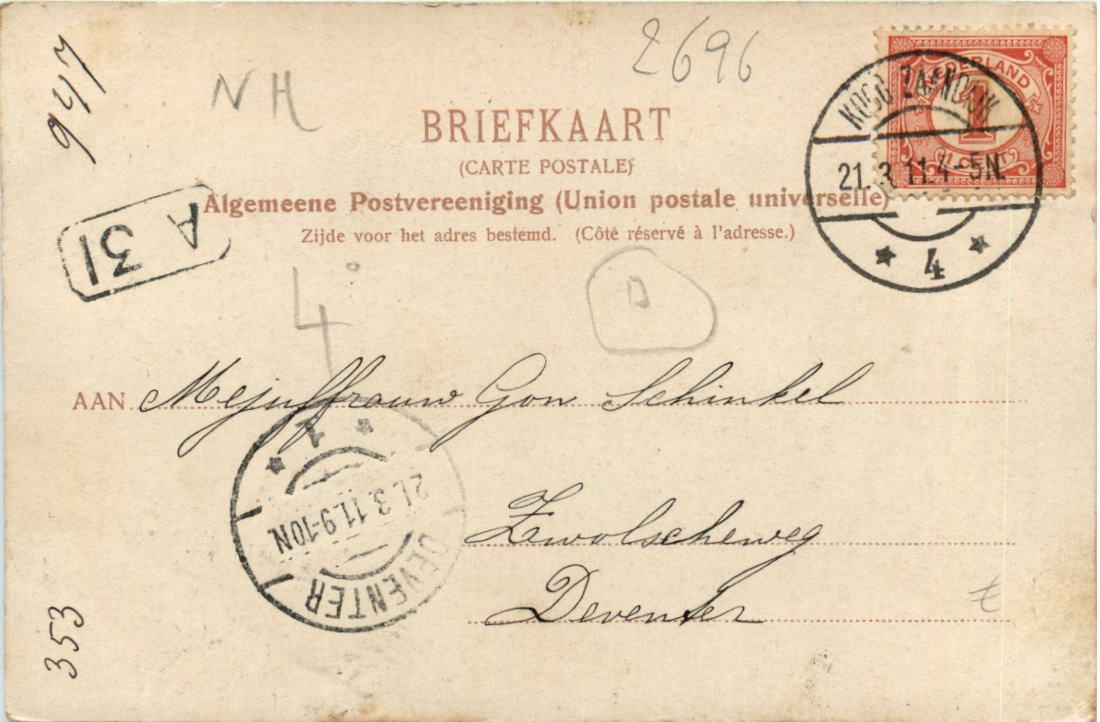 947
NH
2696
NEDERLAND
1
1 CENT
KOOG ZAANDIJK
21.3.11.4-5N.
4
BRIEFKAART
(CARTE POSTALE)
Algemeene Postvereeniging (Union postale universelle)
Zijde voor het adres bestemd. (Côté réservé à l'adresse.)
A 31
4°
AAN Mejuffrouw Gon Schinkel
1
21.3.11.9-10N.
DEVENTER
Zwolscheweg
Deventer
353